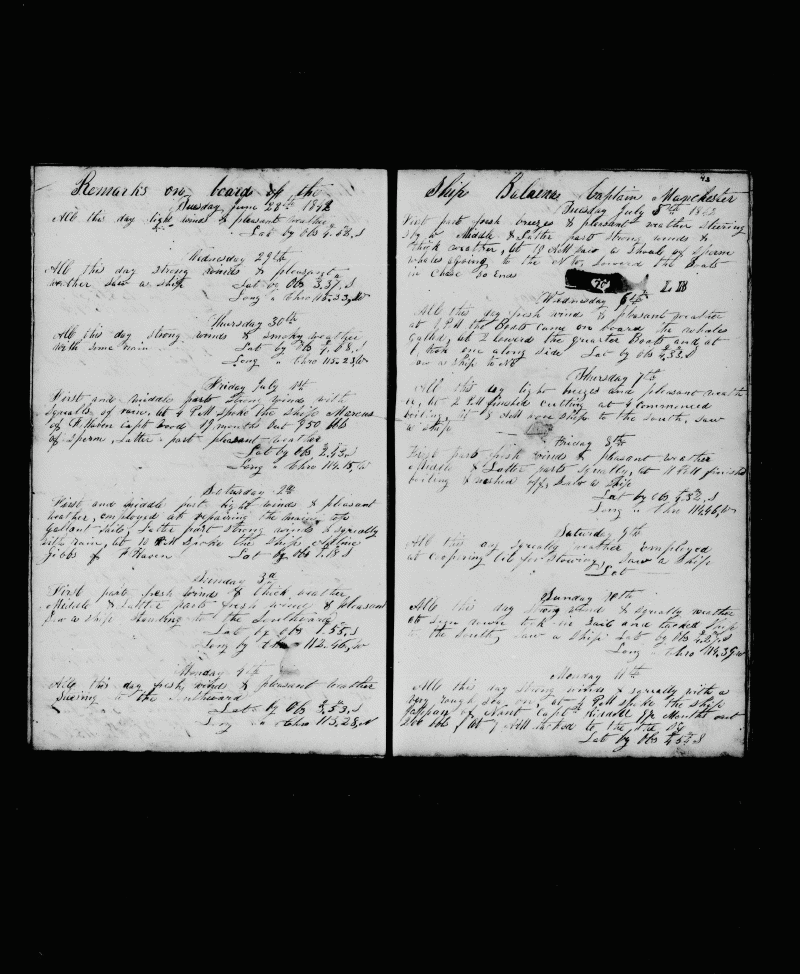 Remarks on board of the
Tuesday June 28th 1842
All this day light winds & pleasant weather
Lat by Obs S
Wednesday 29th
All this day strong winds & pleasant
weather saw a ship Lat by Obs 3.37.S
Long " Chro 115.33.W
Thursday 30th
All this day strong winds & smoky weather
with some rain Lat by Obs S
Long " Chro 115.23 W
Friday July 1st
First and middle parts strong winds with
squalls of rain, at 4 P.M spoke the ship Marcus
of F. Haven Capt Wood 19 months out 950 bbls
of sperm, Latter part pleasant weather
Lat by Obs 2.43.S
Long " Chro 114.15 W
Saturday 2nd
First and middle part light winds & pleasant
weather, employed at repairing the top
gallant sails, Latter part strong winds & squally
with rain, at 10 A.M spoke the ship
Gibbs of F Haven Lat by Obs 1.18 S
Sunday 3d
First part fresh winds & thick weather,
Middle & Latter parts fresh winds & pleasant
saw a ship steering to the Southward
Lat by Obs 1.55.S
Long by Chro 112.46.W
Monday 4th
All this day fresh winds & pleasant weather
steering to the Southward
Lat by Obs 3.53.S
Long " Chro 113.28.W
Ship Balaena Captain Manchester
Tuesday July 5th 1842
First part fresh breezes & pleasant weather steering
S by W Middle & Latter parts strong winds &
thick weather, at 10 A.M saw a shoal of sperm
whales going to the Lowered the Boats
in chase So Ends
Wednesday 6th
All this day fresh winds & pleasant weather
at 1 P.M the Boats came on board the whales
gallied, at 2 lowered the quarter Boats and at
took one along side Lat by Obs 4.33.S
saw a ship to
Thursday 7th
All this day light breezes and pleasant weath
er, at 2 P.M finished cutting at 4 commenced
boiling, at 8 A.M ship to the South, saw
a ship
Friday 8th
First part fresh winds & pleasant weather
Middle & Latter parts squally, at 11 P.M finished
boiling & washed off, saw a ship
Lat by Obs 4.52.S
Long " Chro 114.46.W
Saturday 9th
All this day squally weather employed
at coopering oil for stowing, saw a ship
Lat
Sunday 10th
All this day strong winds & squally weather
at down took in sail and tacked ship
to the South, saw a ship Lat by Obs 4.27.S
Long " Chro 114.39 W
Monday 11th
All this day strong winds & squally with a
very rough sea on, at 2 P.M spoke the ship
of Nant Capt Riddell 17 Months out
200 bbls, at 7 A.M tacked to the
Lat by Obs 4.53.S